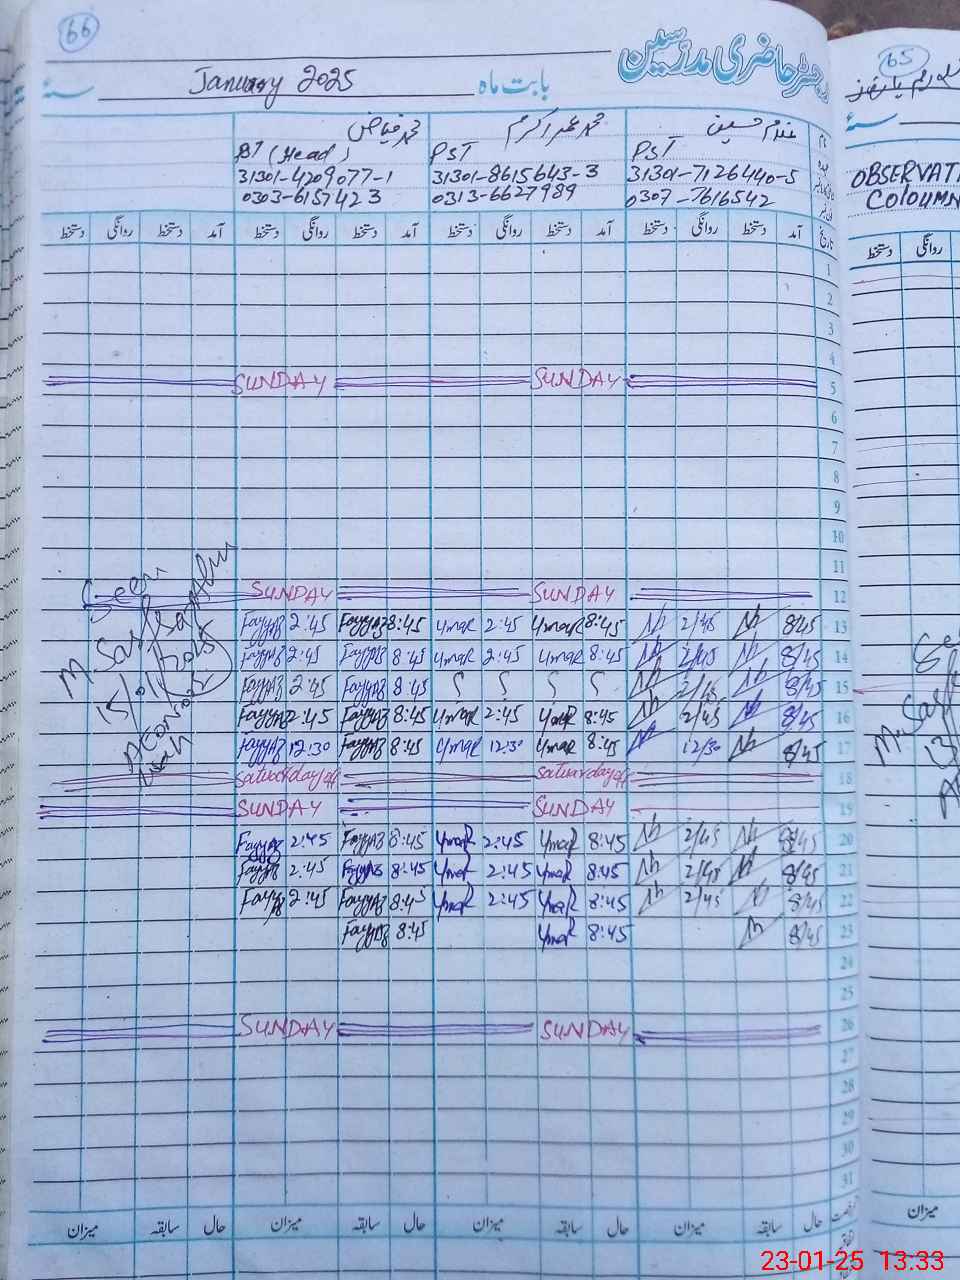 66
رجسٹر حاضری مدرسین
January 2025 بابت ماہ سنہ
محمد فیاض محمد عمر اکرم غلام حسین
PST (Head) PST PST
31301-4209077-1 31301-8615643-3 31301-7126440-5
0303-6157423 0313-6627989 0307-7616542
دستخط روانگی دستخط آمد دستخط روانگی دستخط آمد دستخط روانگی دستخط آمد دستخط روانگی دستخط آمد تاریخ
1
2
3
4
SUNDAY SUNDAY 5
6
7
8
9
10
11
SUNDAY SUNDAY 12
Fayyaz 2:45 Fayyaz 8:45 Ymar 2:45 Ymar 8:45 2/45 8/45 13
Fayyaz 2:45 Fayyaz 8:45 Ymar 2:45 Ymar 8:45 2/45 8/45 14
Fayyaz 2:45 Fayyaz 8:45 2/45 8/45 15
Fayyaz 2:45 Fayyaz 8:45 Ymar 2:45 Ymar 8:45 2/45 8/45 16
Fayyaz 12:30 Fayyaz 8:45 Ymar 12:30 Ymar 8:45 12/30 8/45 17
Saturday off Saturday off 18
SUNDAY SUNDAY 19
Fayyaz 2:45 Fayyaz 8:45 Ymar 2:45 Ymar 8:45 2/45 8/45 20
Fayyaz 2:45 Fayyaz 8:45 Ymar 2:45 Ymar 8:45 2/45 8/45 21
Fayyaz 2:45 Fayyaz 8:45 Ymar 2:45 Ymar 8:45 2/45 8/45 22
Fayyaz 8:45 Ymar 8:45 8/45 23
24
25
SUNDAY SUNDAY 26
27
28
29
30
31
میزان سابقہ حال میزان سابقہ حال میزان سابقہ حال میزان سابقہ حال
Seen
65
سنہ
OBSERVAT
COLOUMN
دستخط روانگی
میزان
23-01-25 13:33